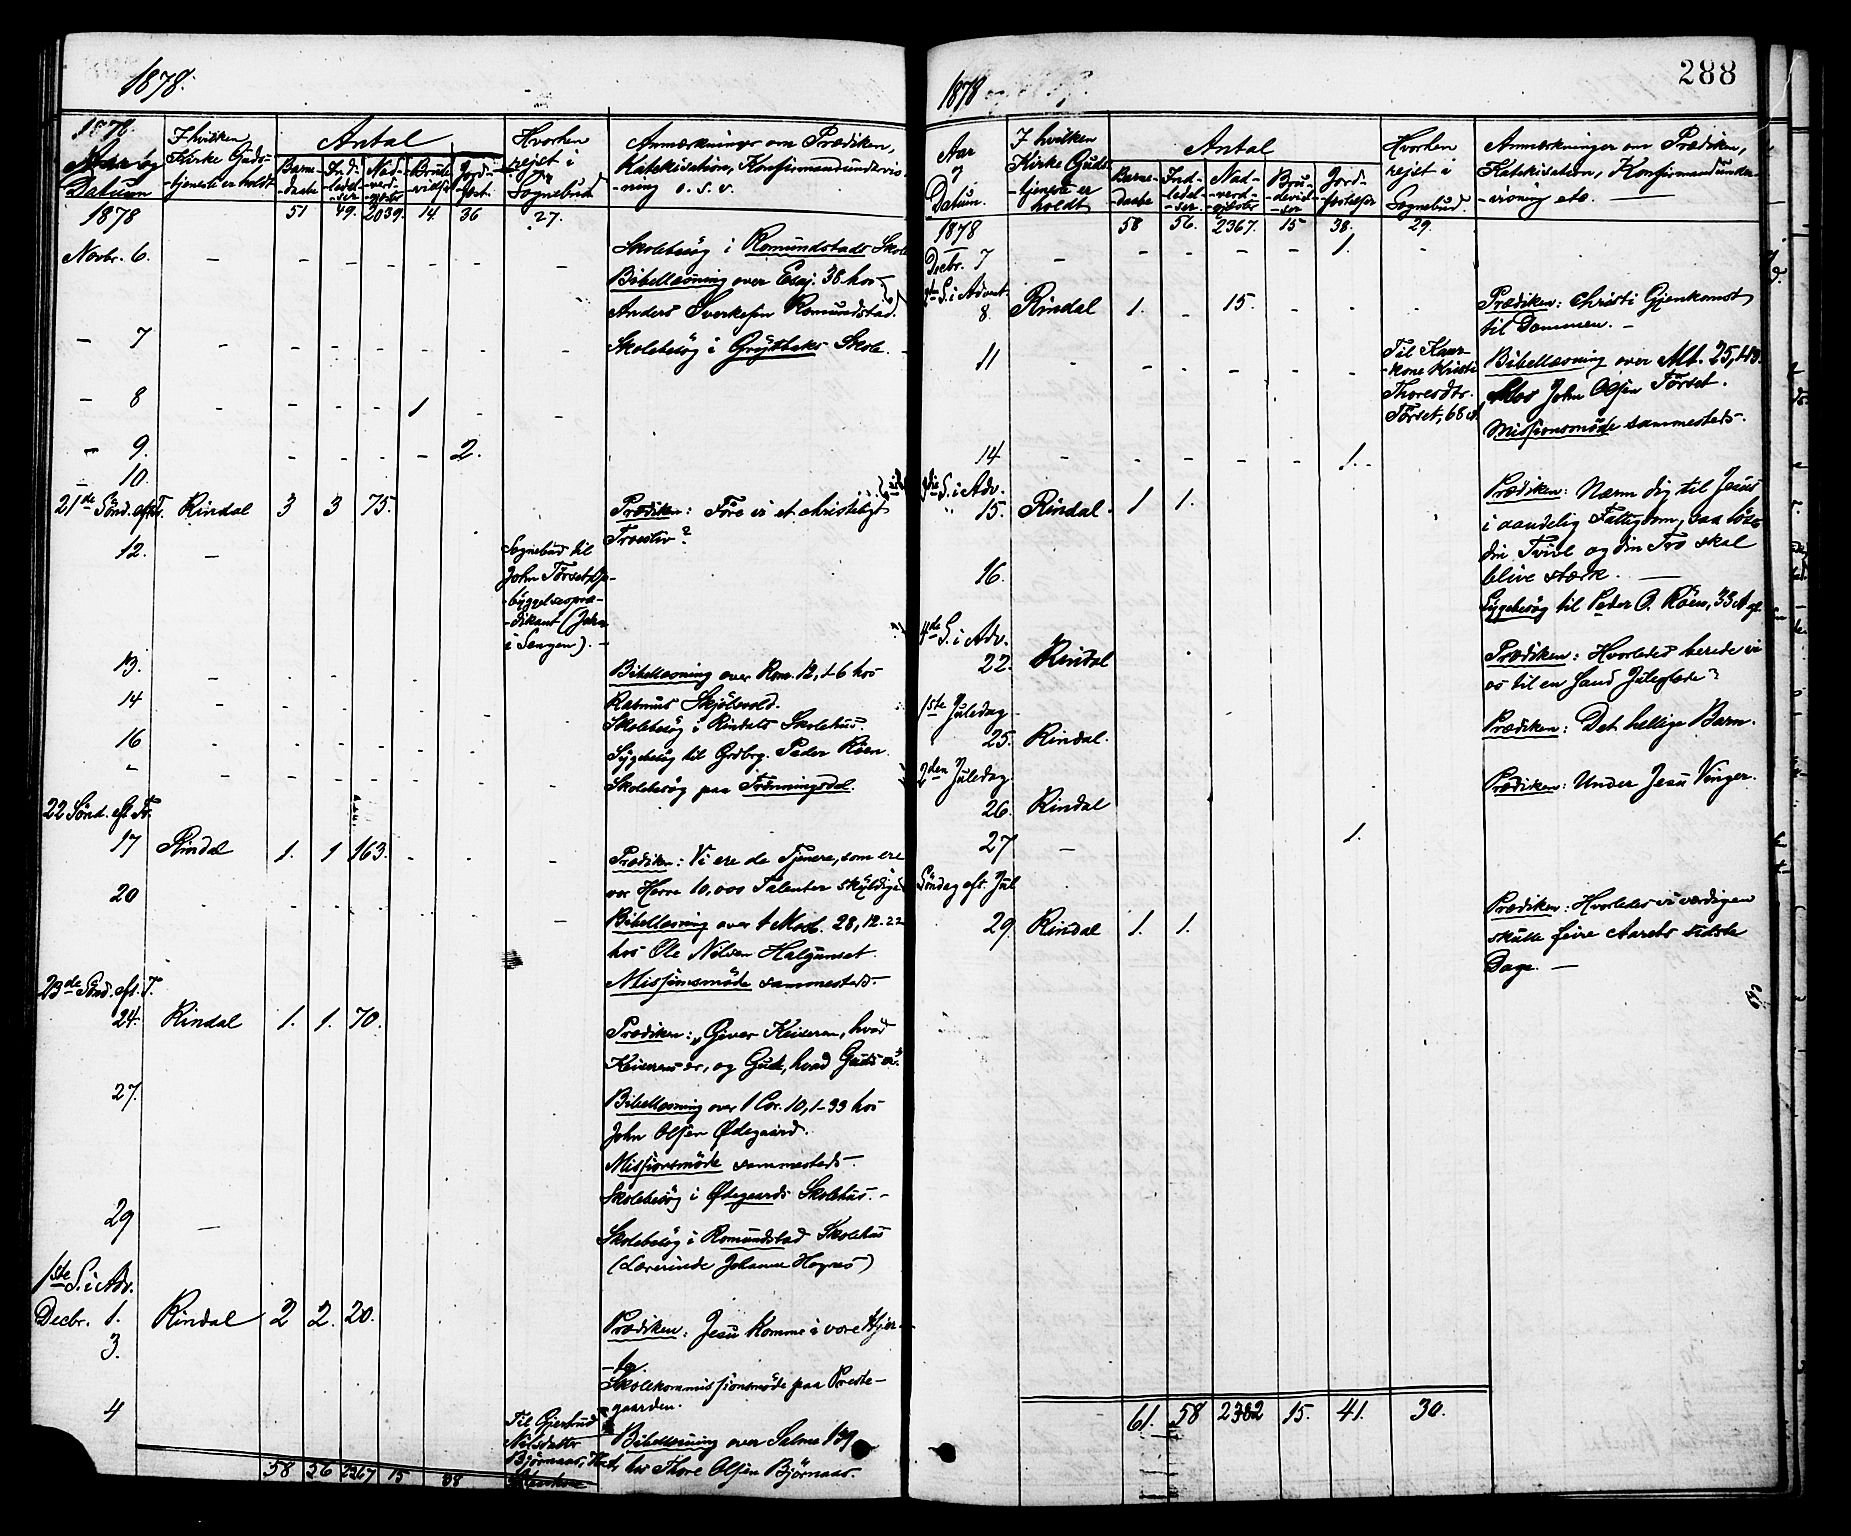 1878.
1878.
Aar og
Datum
I hvilken
Kirke Guds-
tjeneste er holdt
Antal
Barne-
daabe
Ind-
ledel-
ser
Nad-
verd-
gjester
Brude-
vielser
Jord-
fæst.
Hvorhen
rejst i
Sognebud
Anmærkninger om Prædiken,
Katekisation, Konfirmandundervis-
ning o. s. v.
1878 51 49. 2039. 14 36 27.
Novbr. 6. - - - - - - - Skolebesøg i Romundstads Skole
Bibellæsning over Esaj. 38 hos
Anders Sverkesen Romundstad.
- 7 - - - - - - - Skolebesøg i Grytbaks Skole.
- 8 - - - - 1 - -
- 9. - - - - - 2.
- 10.
21de Sønd. eft. T. Rindal 3 3 75. Prædiken: Føre vi et christeligt
Troesliv?
12. - Sognebud til
John Tørset Op-
byggelsespræ-
dikant (John
i Sengen). -
13. - - - - - - Bibellæsning over Rom. 12, 1-6 hos
Rasmus Skjølsvold.
14 - - - - - - Skolebesøg i Rindals Skolehus.
16 - - - - - - Sygebesøg til Grdbrg. Peder Røen.
- - - - - - - Skolebesøg paa Trønningsdal.
22 Sønd. eft. Tr.
17 Rindal 1. 1 163. - - - Prædiken: Vi ere de Tjenere, som ere
vor Herre 10,000 Talenter skyldige.
20 - - - - - - Bibellæsning over 1 Mos. 28, 12-22
hos Ole Nilsen Halgunset.
Missionsmøde sammesteds.
23de Sønd. eft. T.
24. Rindal 1. 1. 70. Prædiken: "Giver Keiseren, hvad
Keiserens er, og Gud, hvad Guds er."
27. Bibellæsning over 1 Cor. 10, 1-33 hos
John Olsen Ødegaard.
Missionsmøde sammesteds.
Skolebesøg i Ødegaards Skolehus. -
29 - Skolebesøg i Romundstad Skolehus
(Lærerinde Johanne Hognes)
1ste S. i Adv.
Decbr. 1. Rindal 2 2. 20. Prædiken: Jesu Komme i vore Hjer-
-ter.
3. Skolekommissionsmøde paa Præste-
gaarden.
4 Til Gjertrud
Nilsdatter
Bjørnaas,
Bibellæsning over Salme 139
hos Thore Olsen Bjørnaas.
58 56 2367 15 38
288
1878
Aar
og
Datum.
I hvilken
Kirke Guds-
tjeneste er
holdt
Antal
Barne-
daabe
Ind-
ledel-
ser
Nad-
verd-
gjester
Bru-
deviel-
ser
Jord-
fæstelser
Hvorhen
rejst i
Sognebud.
Anmærkninger om Prædiken,
Katekisation, Konfirmandunder-
visning etc.
1878 58 56. 2367. 15 38. 29.
Decbr. 7 - - - - - 1. -
2den S. i Advent
8. Rindal 1. - 15. - - - Prædiken: Christi Gjenkomst
til Dommen. -
11 - - - - - - Til Kaar-
kone Kristi
Thoresdtr.
Tørset, 68 A.
Bibellæsning over Mt. 25, 1-13.
hos John Olsen Tørset.
Missionsmøde sammesteds.
14 - - - - - 1. -
3die S. i Adv.
15. Rindal. 1 1. Prædiken: Nærm dig til Jesus
i aandelig Fattigdom, saa løses
din Tvivl og din Tro skal
blive stærk. -
16. Sygebesøg til Peder O. Røen, 33 A. gl.
4de S. i Adv.
22. Rindal Prædiken: Hvorledes berede vi
os til en sand Juleglæde?
1ste Juledag
25. Rindal. Prædiken: Det hellige Barn.
2den Juledag
26. Rindal Prædiken: Under Jesu Vinger.
27 - 1.
Søndag eft. Jul
29. Rindal 1. 1. Prædiken: Hvorledes vi værdigen
skulle feire Aarets sidste
Dage. -
61. 58 2382 15. 41. 30.